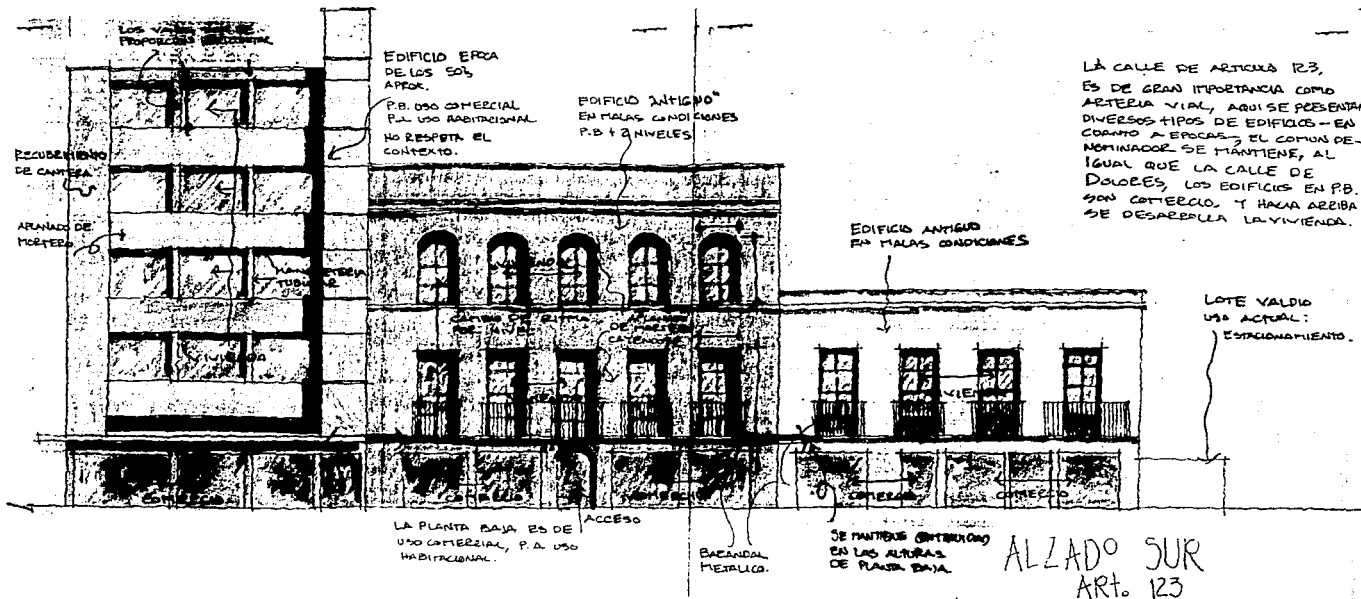 LOS VANOS
PROPORCION
EDIFICIO EPOCA
DE LOS 50s
APROX.
P.B. USO COMERCIAL
P.A. USO HABITACIONAL
NO RESPETA EL
CONTEXTO.
RECUBRIMIENTO
DE CANTERA
APLANADO DE
MORTERO
TUBULAR
VIVIENDA
EDIFICIO "ANTIGUO"
EN MALAS CONDICIONES
P.B + 2 NIVELES
CAMBIO DE RITMO
POR NIVEL
LA CALLE DE ARTICULO 123,
ES DE GRAN IMPORTANCIA COMO
ARTERIA VIAL, AQUI SE PRESENTAN
DIVERSOS TIPOS DE EDIFICIOS - EN
CUANTO A EPOCAS, EL COMUN DE-
NOMINADOR SE MANTIENE, AL
IGUAL QUE LA CALLE DE
DOLORES, LOS EDIFICIOS EN P.B.
SON COMERCIO, Y HACIA ARRIBA
SE DESARROLLA LA VIVIENDA.
EDIFICIO ANTIGUO
EN MALAS CONDICIONES
LOTE VALDIO
USO ACTUAL:
ESTACIONAMIENTO.
COMERCIO
COMERCIO
COMERCIO
COMERCIO
COMERCIO
ACCESO
LA PLANTA BAJA ES DE
USO COMERCIAL, P.A USO
HABITACIONAL.
BARANDAL
METALICO.
SE MANTIENE CONTINUIDAD
EN LAS ALTURAS
DE PLANTA BAJA
ALZADO SUR
ARTo 123